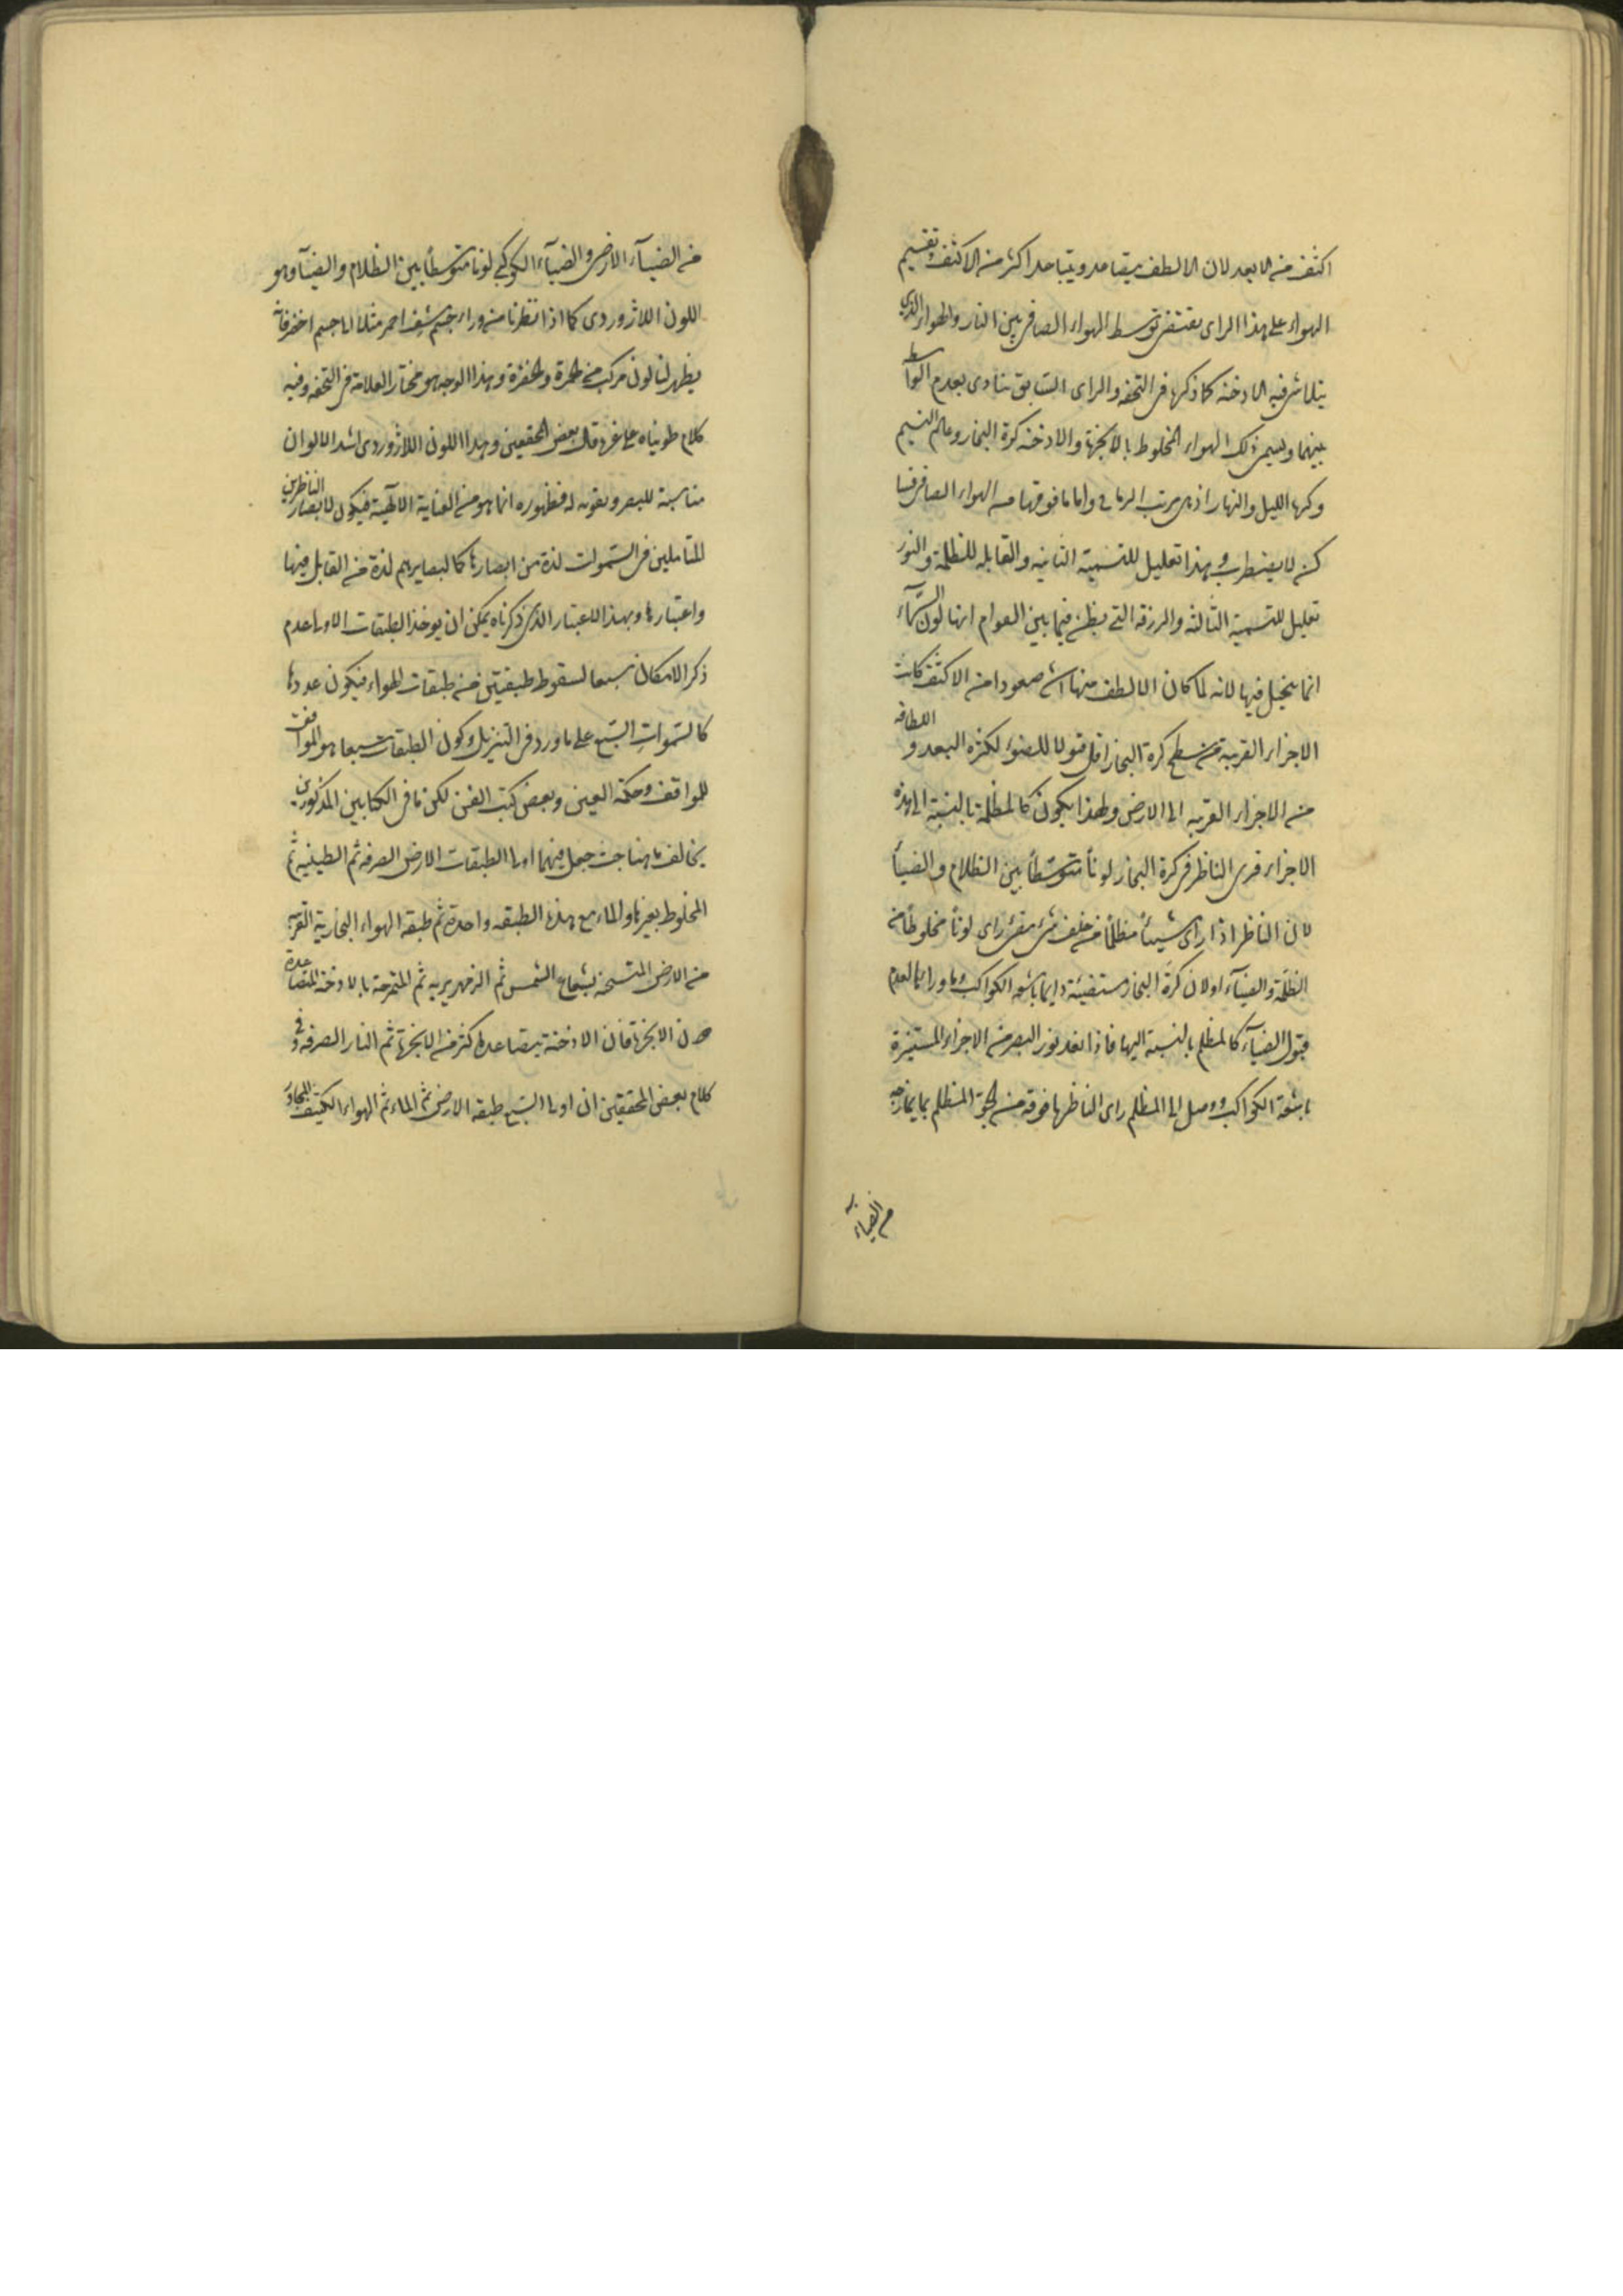 اكثف من الابعد لان الالطف يتصاعد ويتباعد اكثر من الاكثف وتقسيم
الهواء على هذا الراى يقتضى توسط الهواء الصافى بين النار والهواء الذى
يتلاشى فيه الادخنه كما ذكرها فى التحفه والراى السابق ينادى بعدم التوسط
بينهما ويسمى ذلك الهواء المخلوط بالابخرة والادخنه كرة البخار وعالم النسيم
وكرة الليل والنهار اذ هى مهب الرياح واما ما فوقها من الهواء الصافى فسا
كن لا يضطرب وهذا تعليل للتسمية الثانيه والقابله للظلمة والنور
تعليل للتسمية الثالثه والزرقه التى يظن فيما بين العوام انها لون السماء
انما يتخيل فيها لانه لما كان الالطف منها اشد صعودا من الاكثف كانت
الاجزاء القريبة من سطح كرة البخار اقل قبولا للضوء لكثره البعد و اللطافه
من الاجزاء القريبه الى الارض ولهذا يكون كالمظلمة بالنسبة الى هذه
الاجزاء فيرى الناظر فى كرة البخار لونا متوسطا بين الظلام والضيآ
لان الناظر اذا راى شيئا مظلما من خلف شئ مضئ راى لونا مخلوطا من
الظلمة والضيآء او لان كرة البخار مستضيئة دايما باشعه الكواكب وما ورائها لعدم
قبول الضيآء كالمظلم بالنسبة اليها فاذا نفد نور البصر من الاجزاء المستنيرة
باشعة الكواكب ووصل الى المظلم راى الناظر ما فوقه من الجو المظلم بما يمازجه
من الضياء
من الضيآء الارضى والضيآء الكوكبى لونا متوسطا بين الظلام والضيآ وهو
اللون اللاژوردى كما اذا نظرنا من وراء جسم مشف احمر مثلا الى جسم اخضر فانه
يظهر لنا لون مركب من الحمرة والخضرة وهذا الوجه هو مختار العلامة فى التحفه وفيه
كلام طويناه على غره قال بعض المحققين وهذا اللون اللاژوردى اشد الالوان
مناسبة للبصر وتقويه له فظهوره انما هو من العناية الالهية فيكون لابصار الناظرين
المتاملين فى السموات لذة من ابصارها كما لبصايرهم لذة من التامل فيها
واعتبارها وبهذا الاعتبار الذى ذكرناه يمكن ان يوخذ الطبقات الاولى عدم
ذكر الامكان سبعا لسقوط طبقتين من طبقات الهواء فيكون عددها
كالسموات السبع على ما ورد فى التنزيل وكون الطبقات سبعا هو الموافق
للمواقف وحكمة العين وبعض كتب الفن لكن ما فى الكتابين المذكورين
يخالف ما هنا حيث جعل فيهما اولى الطبقات الارض الصرفه ثم الطينيه ثم
المخلوط بغيرها والماء مع هذه الطبقه واحدة ثم طبقه الهواء البخارية القريبه
من الارض المتسخنه بشعاع الشمس ثم الزمهريريه ثم الممتزجة بالادخنه المتصاعدة
من الابخرة فان الادخنة يتصاعد اكثر من الابخرة ثم النار الصرفه وفى
كلام بعض المحققين ان اولى السبع طبقه الارض ثم الماء ثم الهواء الكثيف المجاور